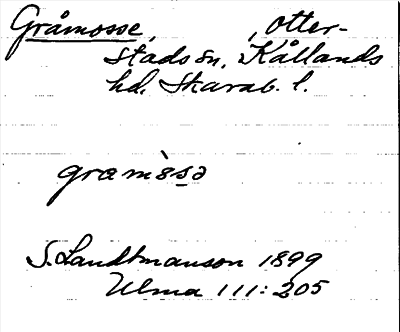 Gråmosse, , Otter-
stads sn, Kållands
hd, Skarab. l.
gramòsa
S. Landtmanson 1899
Ulma 111:205